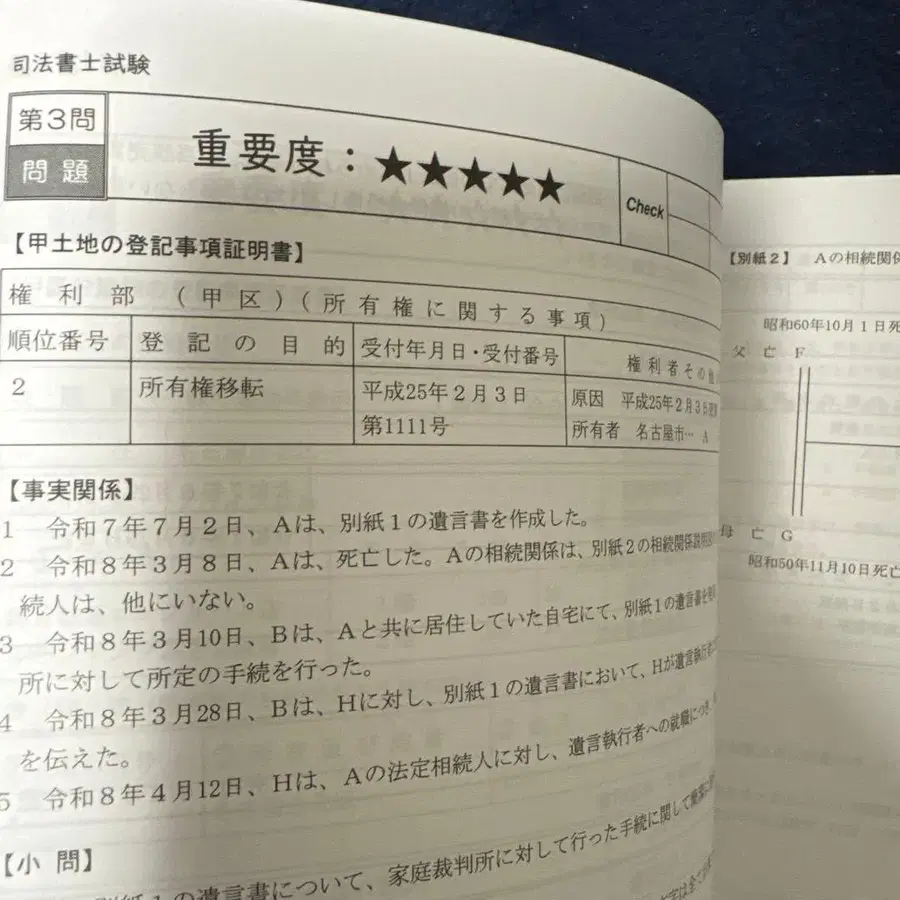 司法書士試験
第3問
問題
重要度：★★★★★
Check
【甲土地の登記事項証明書】
権利部（甲区）（所有権に関する事項）
順位番号 登記の目的 受付年月日・受付番号 権利者その他
2 所有権移転 平成25年2月3日 原因 平成25年2月3日
第1111号 所有者 名古屋市… A
【事実関係】
1 令和7年7月2日、Aは、別紙1の遺言書を作成した。
2 令和8年3月8日、Aは、死亡した。Aの相続関係は、別紙2の相続関係説明
続人は、他にいない。
3 令和8年3月10日、Bは、Aと共に居住していた自宅にて、別紙1の遺言書を
所に対して所定の手続を行った。
4 令和8年3月28日、Bは、Hに対し、別紙1の遺言書において、Hが遺言執行者
を伝えた。
5 令和8年4月12日、Hは、Aの法定相続人に対し、遺言執行者への就職につき
【小問】
別紙1の遺言書について、家庭裁判所に対して行った手続に関して
【別紙2】 Aの相続関係
昭和60年10月1日死
父 亡 F
母 亡 G
昭和50年11月10日死亡